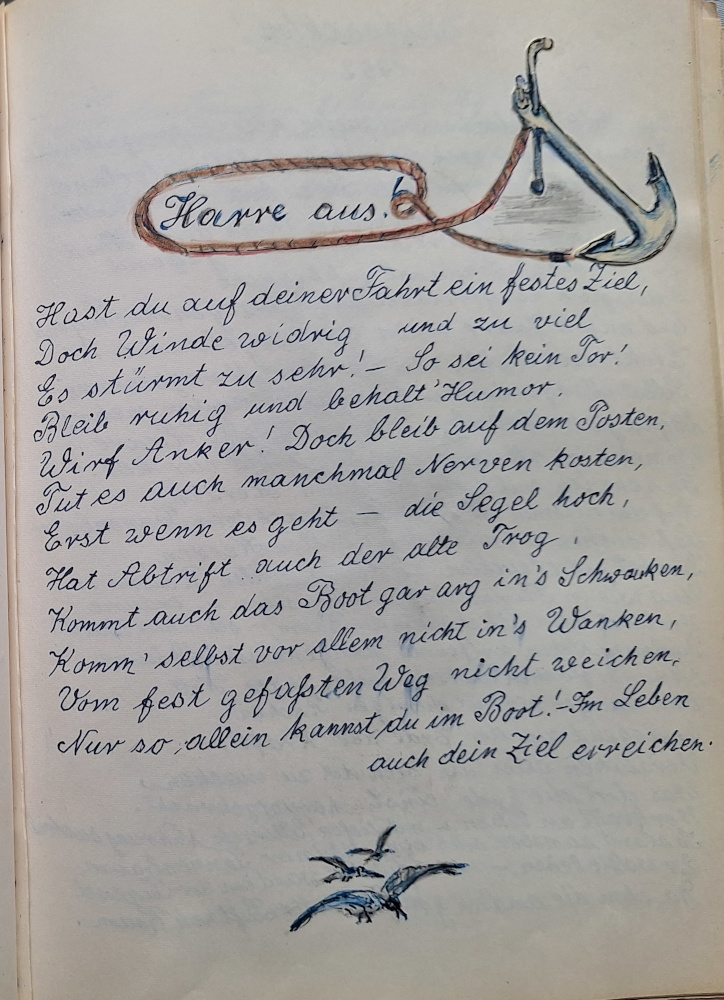 Harre aus!
Hast du auf deiner Fahrt ein festes Ziel,
Doch Winde widrig und zu viel
Es stürmt zu sehr! – So sei kein Tor!
Bleib ruhig und behalt' Humor.
Wirf Anker! Doch bleib auf dem Posten,
Tut es auch manchmal Nerven kosten,
Erst wenn es geht – die Segel hoch,
Hat Abtrift auch der alte Trog.
Kommt auch das Boot gar arg in's Schwanken,
Komm' selbst vor allem nicht in's Wanken,
Vom fest gefaßten Weg nicht weichen,
Nur so, allein kannst du im Boot! – Im Leben
auch dein Ziel erreichen.